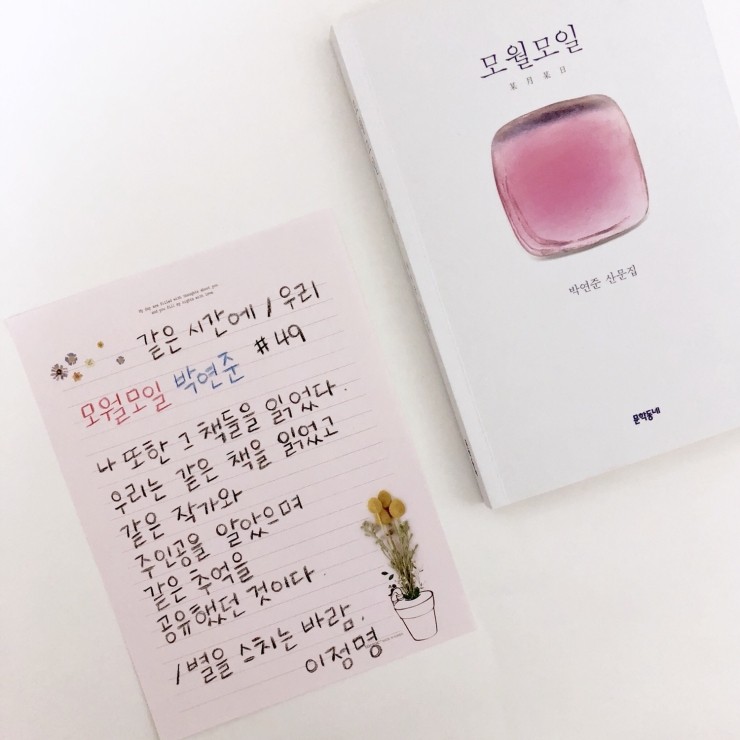 My day are filled with thoughts about you
and you fill my nights with love
같은 시간에 / 우리
#49
모월모일 박연준
나 또한 그 책들을 읽었다.
우리는 같은 책을 읽었고
같은 작가와
주인공을 알았으며
같은 추억을
공유했던 것이다.
/별을 스치는 바람,
이정명
모월모일
某月某日
박연준 산문집
문학동네